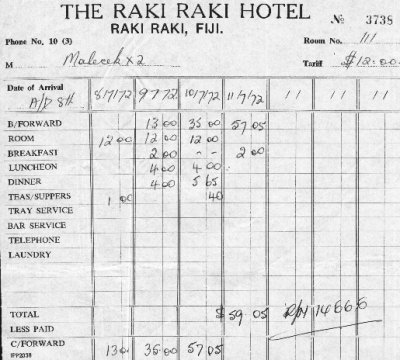 THE RAKI RAKI HOTEL
RAKI RAKI, FIJI.
№ 3738
Phone No. 10 (3)
Room No. 111
M Malecek x 2
Tariff $12.00
Date of Arrival A/D 8th 8/7/72 9/7/72 10/7/72 11/7/72 / / / / / /
B/FORWARD 13 00 35 00 57 05
ROOM 12 00 12 00 12 00
BREAKFAST 2 00 - - 2 00
LUNCHEON 4 00 4 00
DINNER 4 00 5 65
TEAS/SUPPERS 1 00 40
TRAY SERVICE
BAR SERVICE
TELEPHONE
LAUNDRY
TOTAL $ 59 05 14666
LESS PAID
C/FORWARD 13 00 35 00 57 05